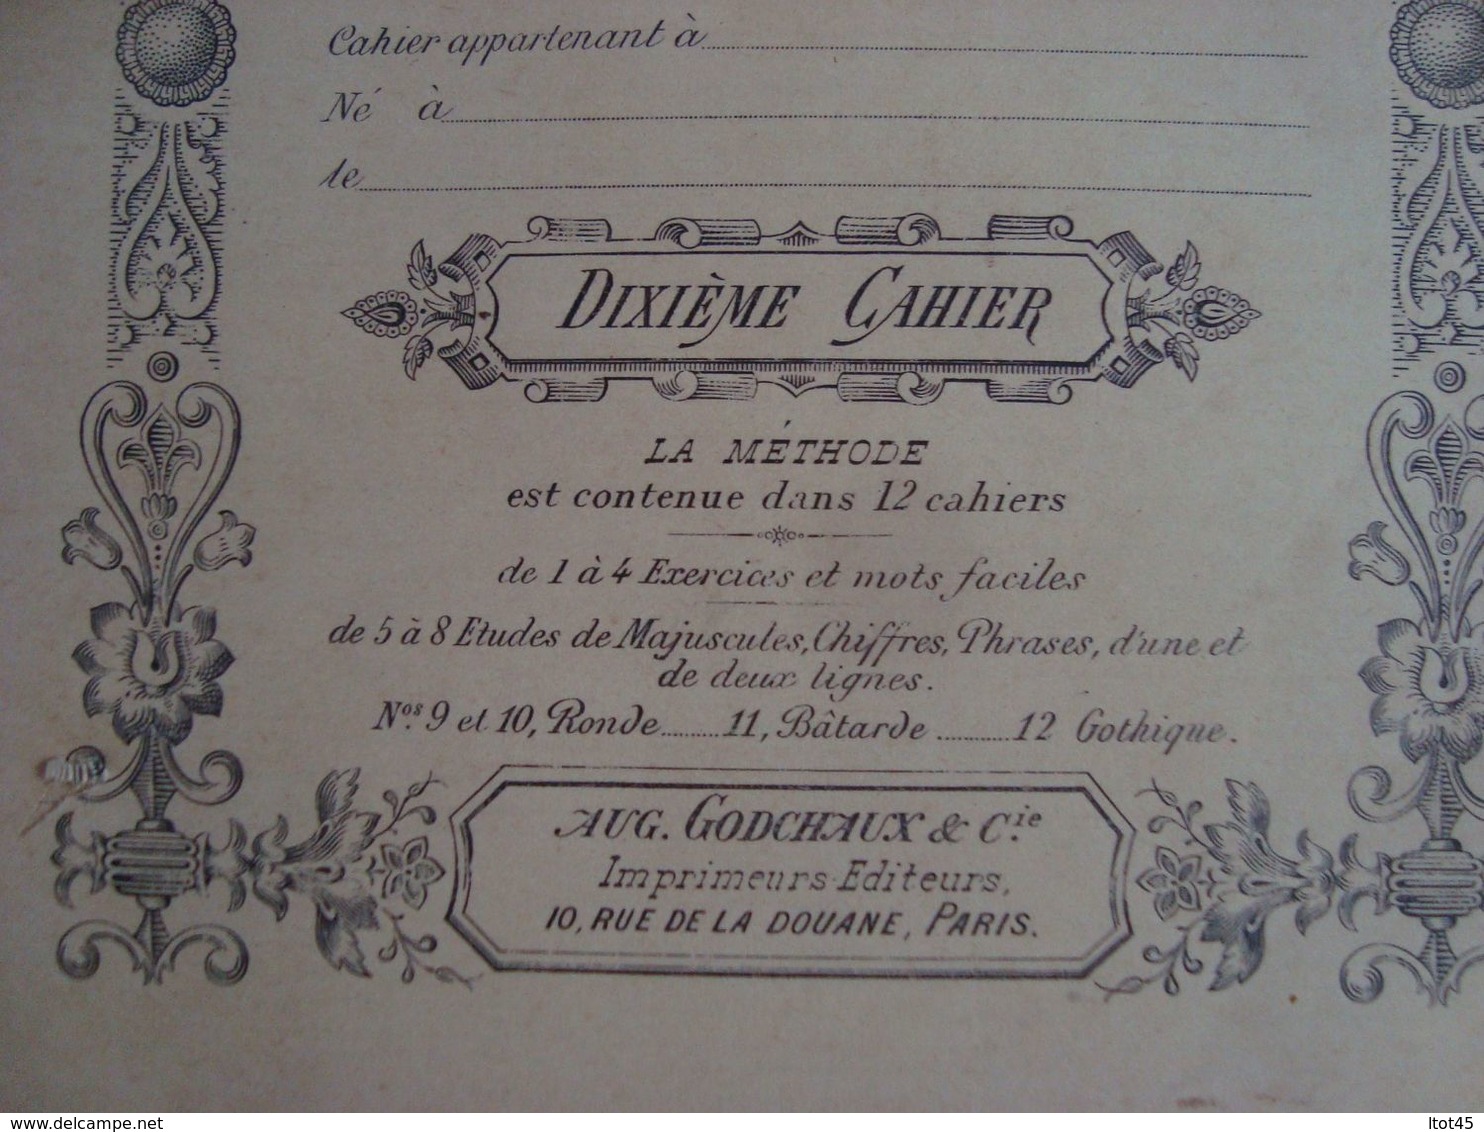 Cahier appartenant à
Né à
le
DIXIÈME CAHIER
LA MÉTHODE
est contenue dans 12 cahiers
de 1 à 4 Exercices et mots faciles
de 5 à 8 Etudes de Majuscules, Chiffres, Phrases, d'une et
de deux lignes.
Nos. 9 et 10, Ronde.........11, Bâtarde ...........12 Gothique.
AUG. GODCHAUX & Cie
Imprimeurs-Editeurs,
10, RUE DE LA DOUANE, PARIS.
www.delcampe.net
ltot45